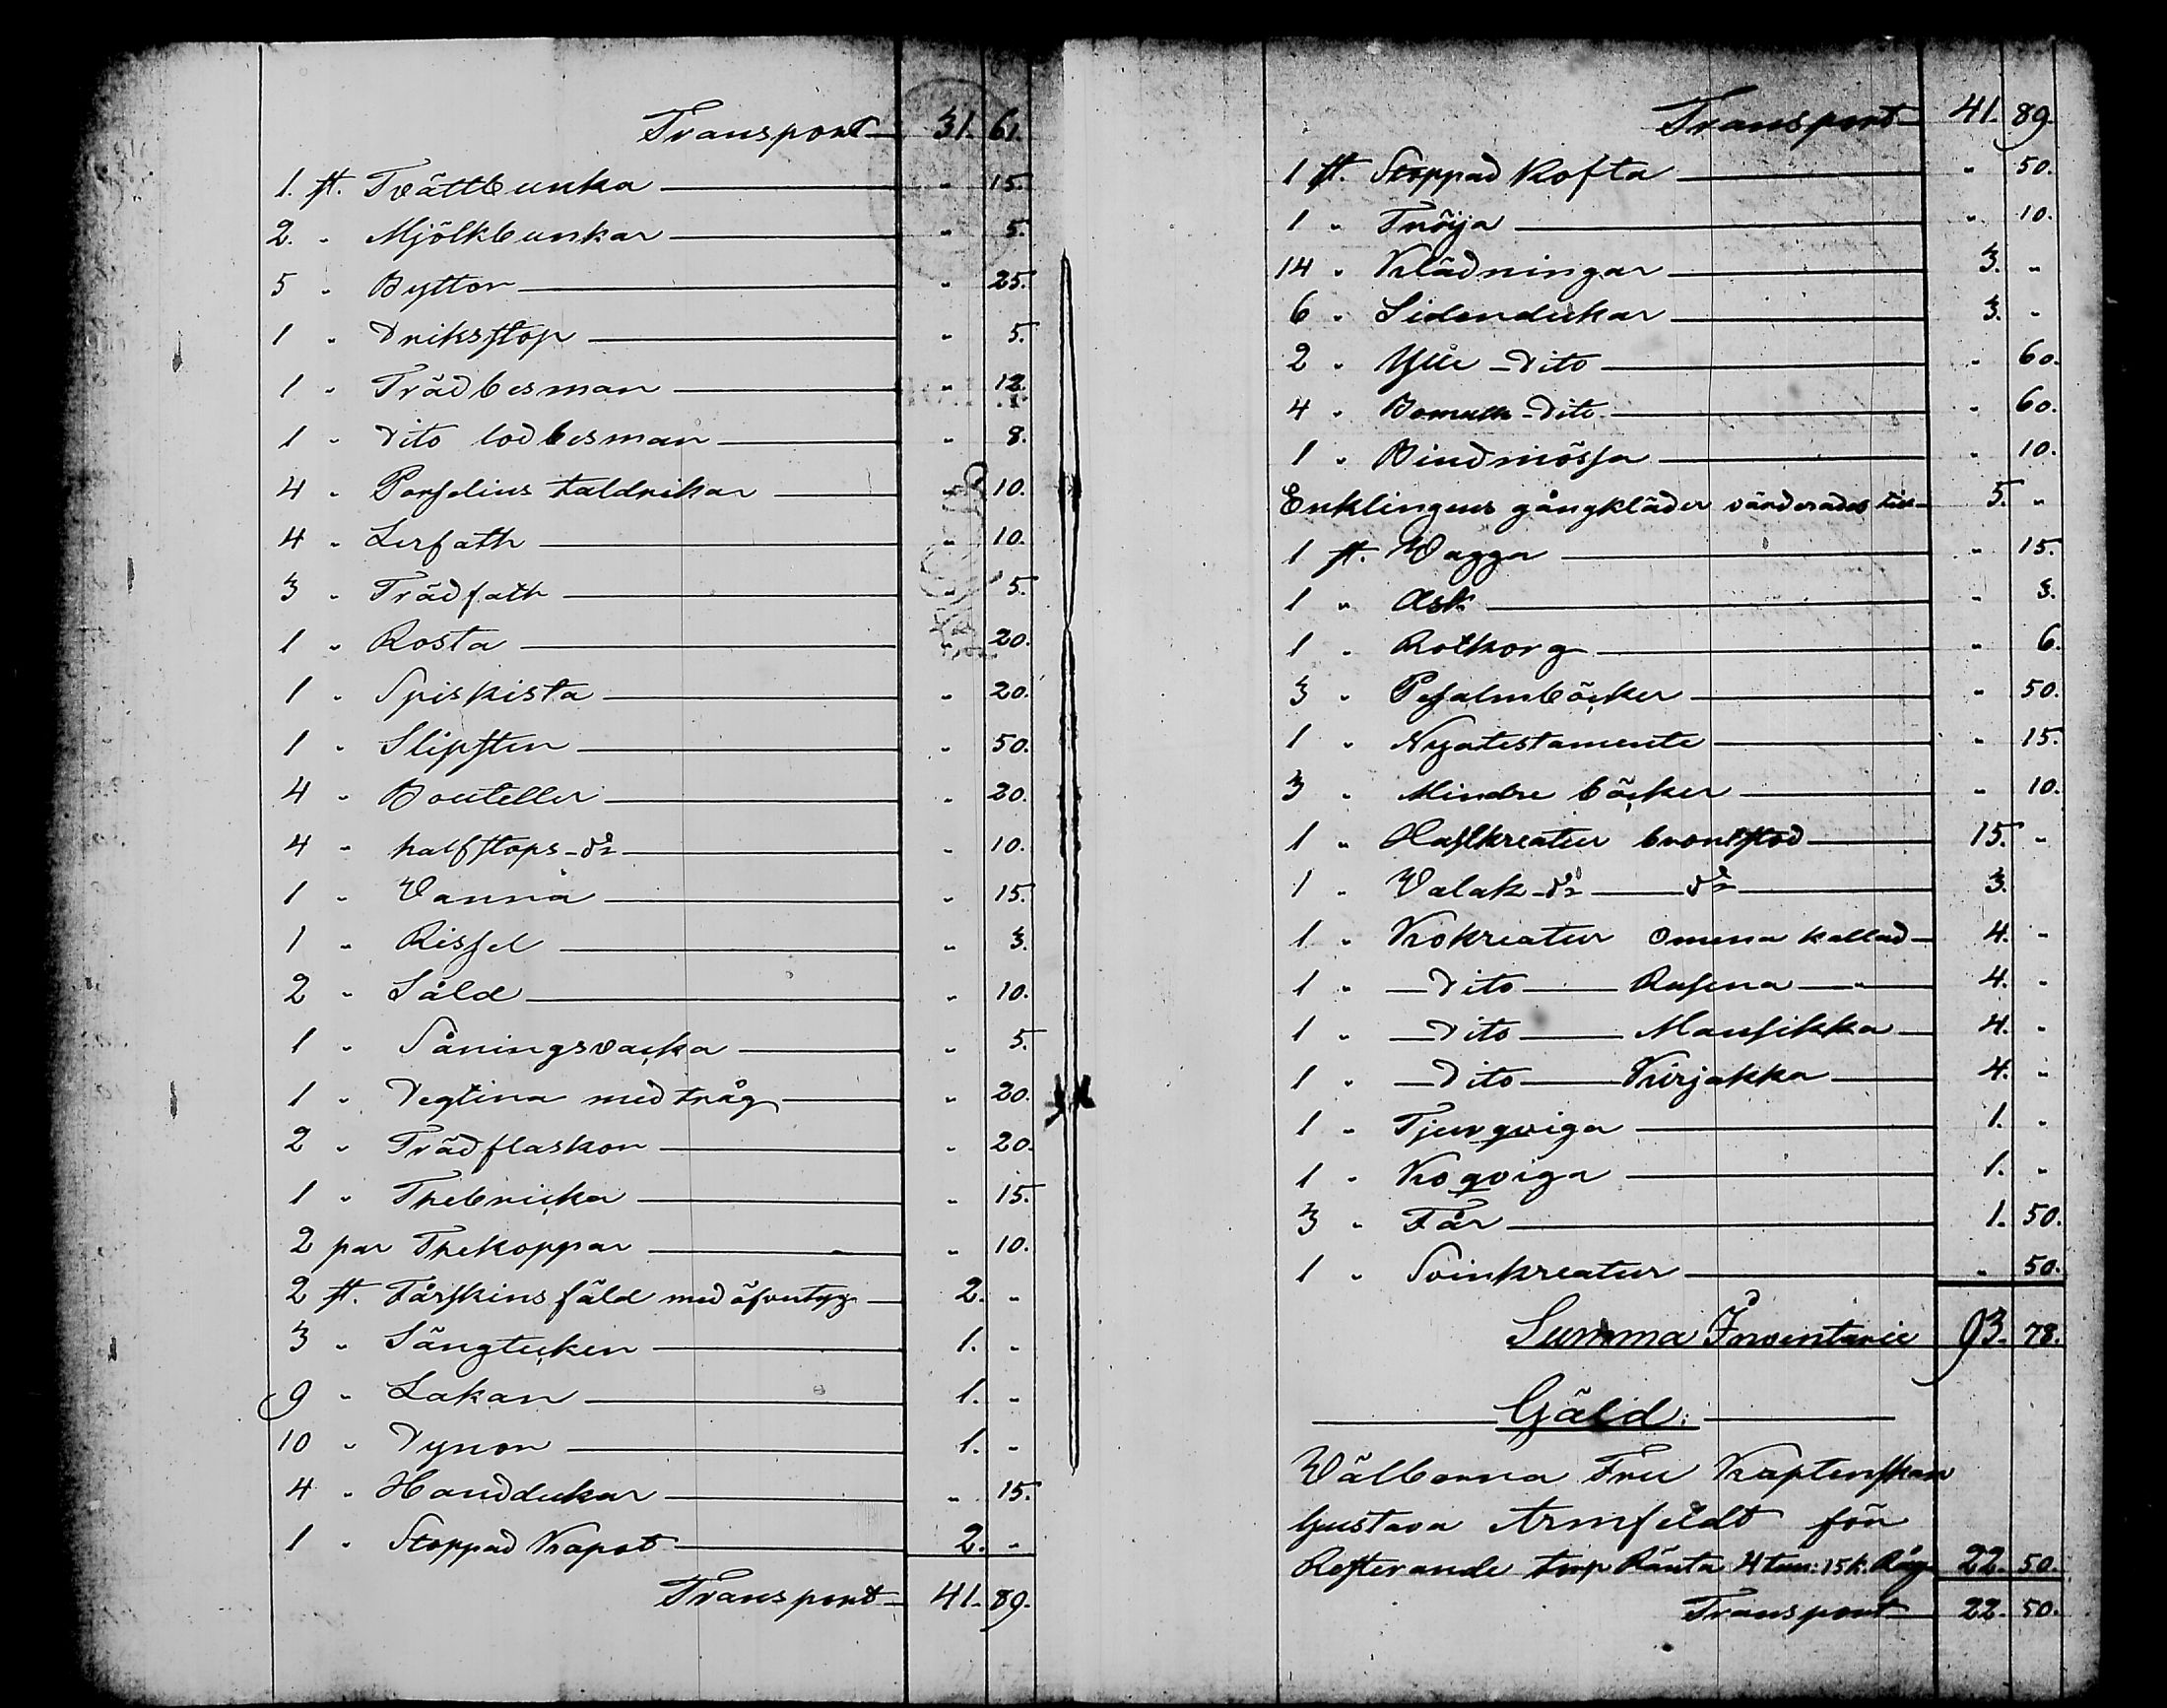 Transport 31. 61.
1. st. Tvättbunka " 15.
2. " Mjölkbunkar " 5.
5 " Byttor " 25.
1 " Driksstop " 5.
1 " Trädbesman " 12.
1 " Dito lodbesman " 8.
4 " Porselins taldrikar " 10.
4 " Lerfath " 10.
3 " Trädfath " 5.
1 " Rosta " 20.
1 " Spiskista " 20.
1 " Slipsten " 50.
4 " Bouteller " 20.
4 " halfstops-do " 10.
1 " Wanna " 15.
1 " Rissel " 3.
2 " Såld " 10.
1 " Såningsvacka " 5.
1 " Degtina med tråg " 20.
2 " Trädflaskor " 20.
1 " Thebricka " 15.
2 par Thekoppar " 10.
2 st. Fårskins fäld med öfvertyg 2. "
3 " Sängtäcken 1. "
9 " Lakan 1. "
10 " Dynor 1. "
4 " Handdukar " 15.
1 " Stoppad Kapot 2. "
Transport 41. 89.
Transport 41. 89.
1 st. Stoppad Kofta " 50.
1 " Tröija " 10.
14 " Klädningar 3. "
6 " Sidendukar 3. "
2 " Ylle-Dito " 60.
4 " Bomulls-Dito " 60.
1 " Bindmössa " 10.
Enklingens gångkläder värderades till 5. "
1 st. Wagga " 15.
1 " Ask " 3.
1 " Rotkorg " 6.
3 " Psalmböcker " 50.
1 " Nyatestamente " 15.
3 " Mindre böcker " 10.
1 " Hästkreatur brontstod 15. "
1 " Walak-do do 3.
1 " Kokreatur Omena kallad 4. "
1 " Dito Rusena " 4. "
1 " Dito Mansikka 4. "
1 " Dito Kirjakka 4. "
1 " Tjurqviga 1. "
1 " Koqviga 1. "
3 " Får 1. 50.
1 " Svinkreatur " 50.
Summa Inventarie 93. 78.
Gäld:
Wälborna Fru Kaptenskan
Gustava Armfeldt för
Resterande torp Ränta 4 tun: 15 k. Råg 22. 50.
Transport 22. 50.